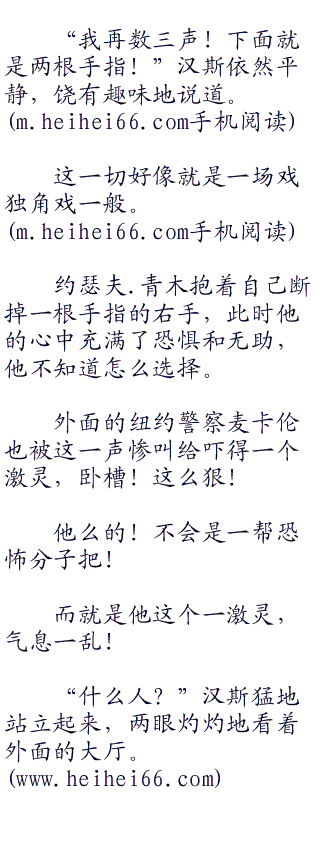 “我再数三声！下面就
是两根手指！”汉斯依然平
静，饶有趣味地说道。
(m.heihei66.com手机阅读)
这一切好像就是一场戏
独角戏一般。
(m.heihei66.com手机阅读)
约瑟夫.青木抱着自己断
掉一根手指的右手，此时他
的心中充满了恐惧和无助，
他不知道怎么选择。
外面的纽约警察麦卡伦
也被这一声惨叫给吓得一个
激灵，卧槽！这么狠！
他么的！不会是一帮恐
怖分子把！
而就是他这个一激灵，
气息一乱！
“什么人？”汉斯猛地
站立起来，两眼灼灼地看着
外面的大厅。
(www.heihei66.com)